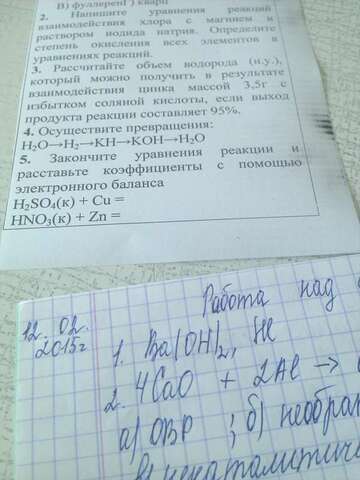 В) фуллерен Г) кварц
2. Напишите уравнения реакций
взаимодействия хлора с магнием и
раствором иодида натрия. Определите
степень окисления всех элементов в
уравнениях реакций.
3. Рассчитайте объем водорода (н.у.),
который можно получить в результате
взаимодействия цинка массой 3,5г с
избытком соляной кислоты, если выход
продукта реакции составляет 95%.
4. Осуществите превращения:
H₂O→H₂→KH→KOH→H₂O
5. Закончите уравнения реакции и
расставьте коэффициенты с помощью
электронного баланса
H₂SO₄(к) + Cu =
HNO₃(к) + Zn =
Работа над
12. 02.
2015г
1. Ba(OH)₂, He
2. 4CaO + 2Al →
а) ОВР ; б) необра